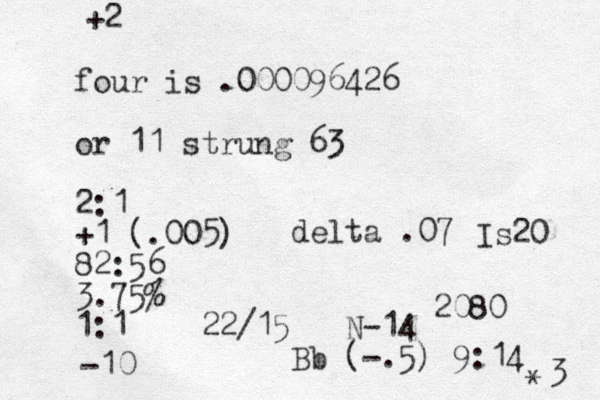 +2
four is .000096426
or 11 strung 63
2:1
+1 (.005) delta .07 Is20
82:56
3.75% 2080
1:1 22/15 N-14
-10 Bb (-.5) 9:14 *3